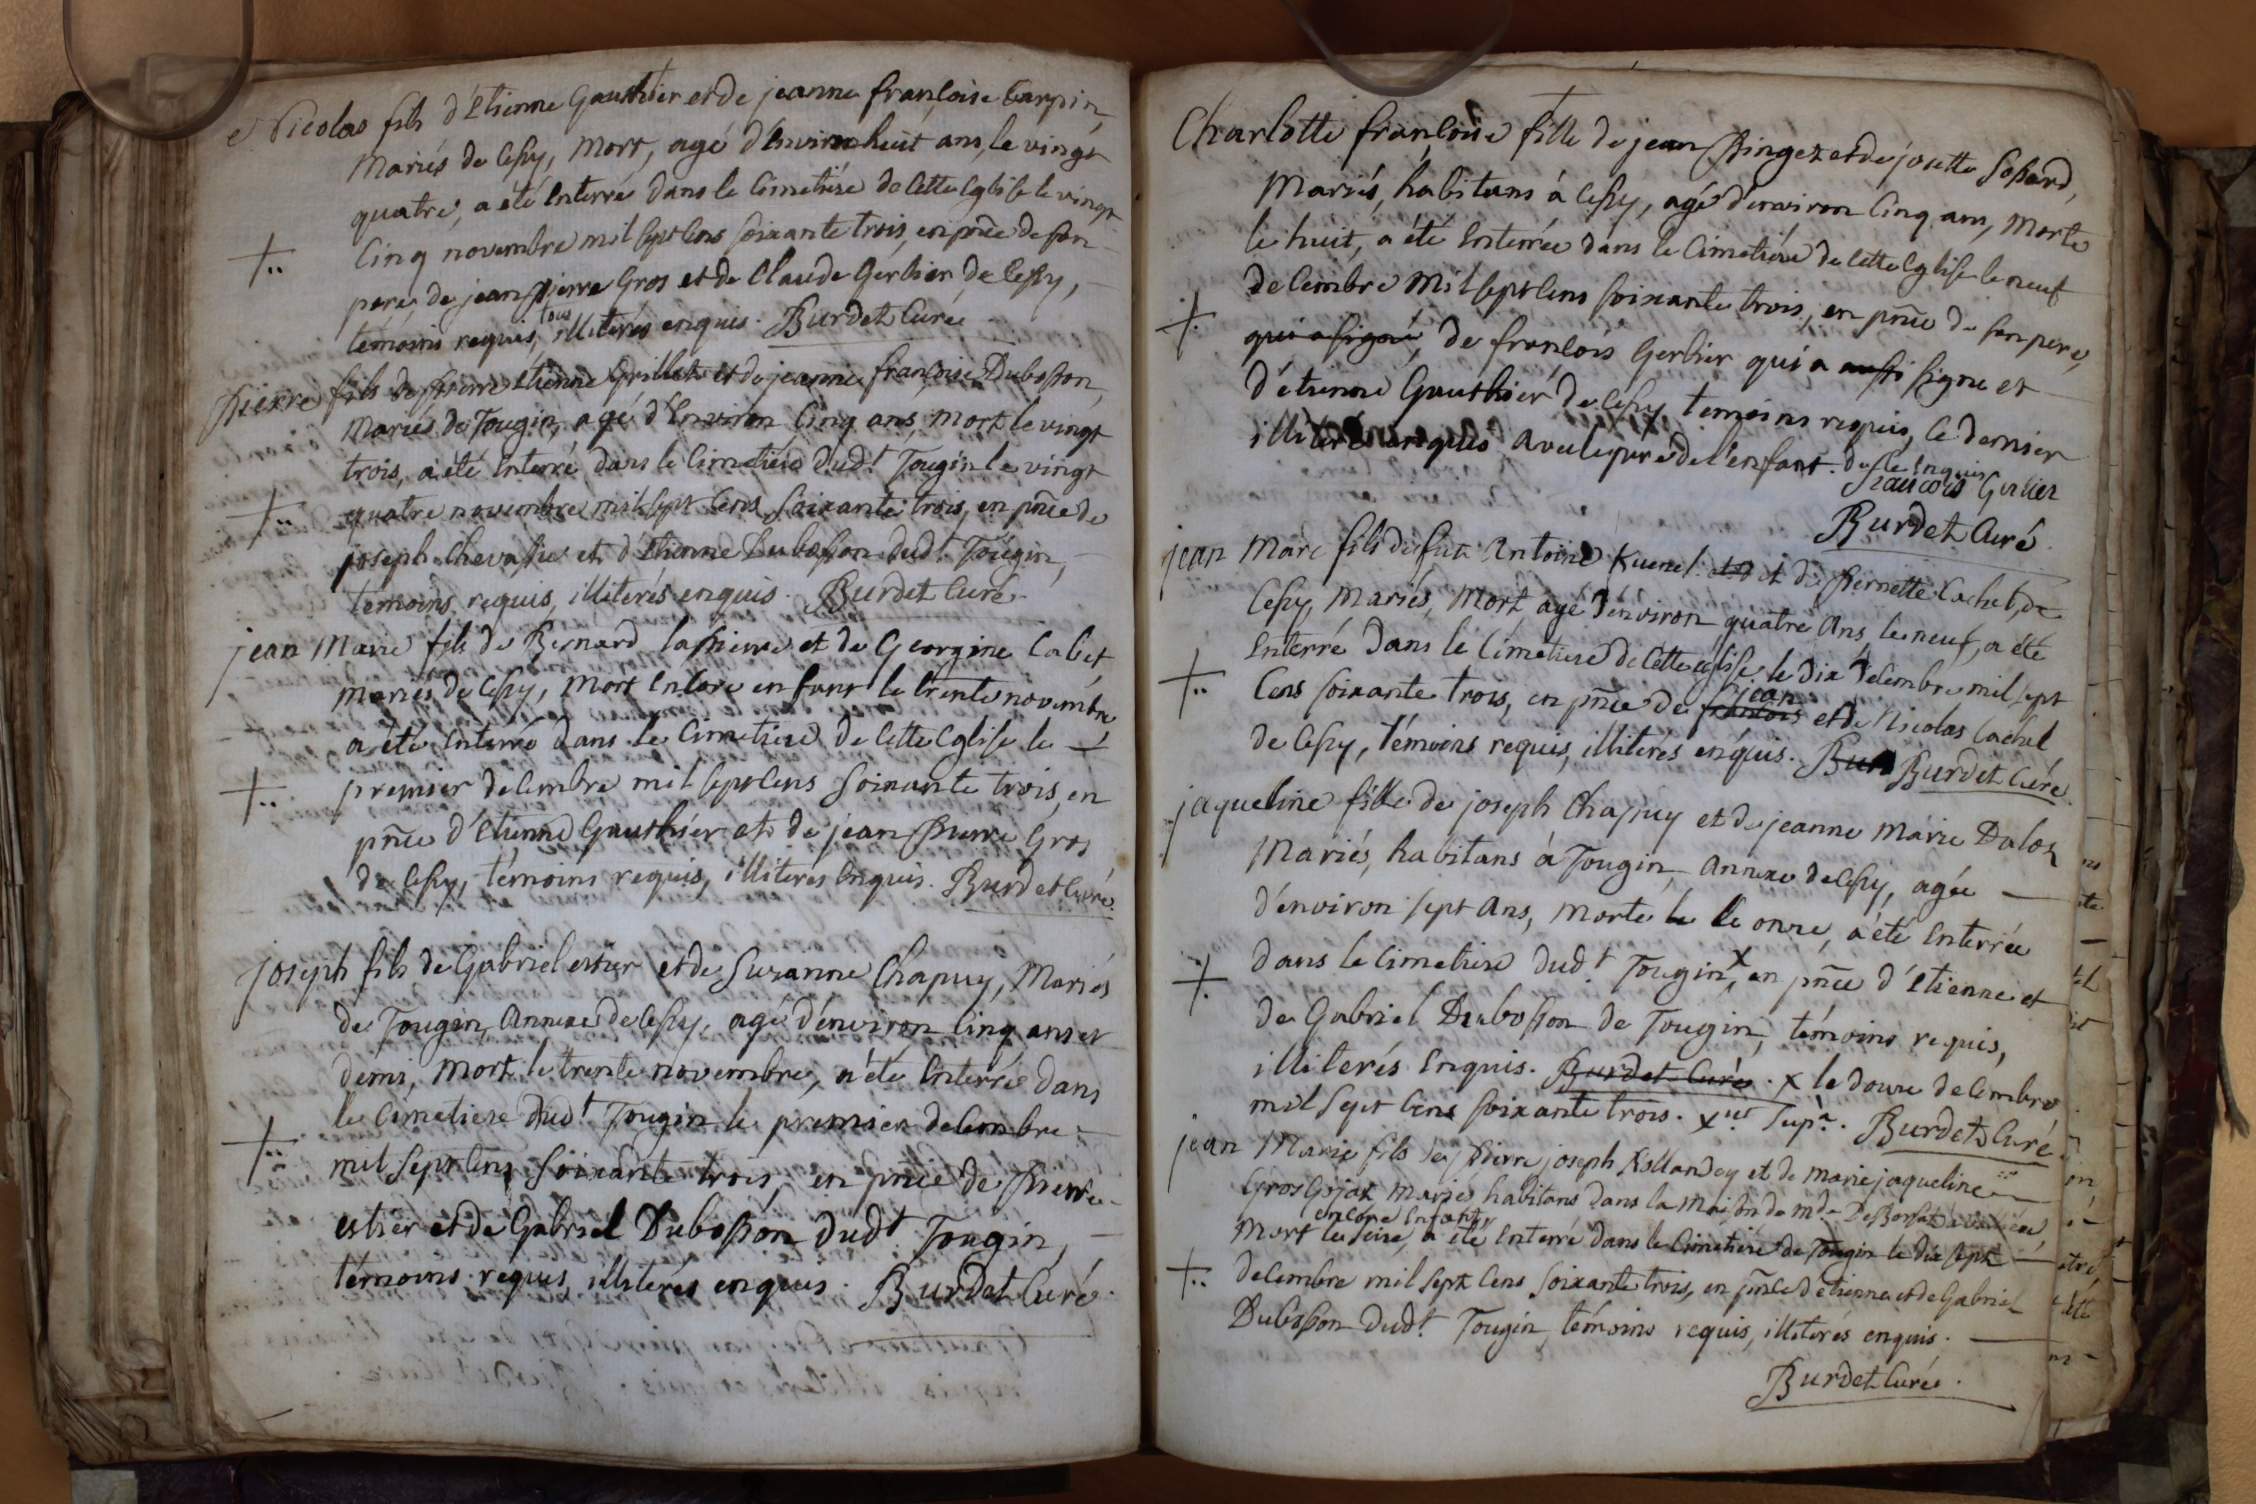 Nicolas fils d'Etienne Gauthier et de jeanne françoise Carpin,
Mariés de Cessy, Mort, agé d'Environ huit ans, le vingt
quatre, a été Enterré dans le Cimetiére de Cette Eglise le vingt
Cinq novembre mil Sept Cens soixante trois, en pñce de son
pere, de jean pierre Gros et de Claude Gerbier de Cessy,
témoins requis, tous illiterés enquis. Burdet Curé
pierre fils de pierre Etienne Grillet et de jeanne françoise Dubosson,
Mariés de Tougin, agé d'Environ Cinq ans, Mort le vingt
trois, a été Enterré dans le Cimetiére dud.t Tougin le vingt
quatre novembre mil Sept Cens Soixante trois, en pñce de
joseph Chevassu et d'Etienne Dubosson dud.t Tougin,
témoins requis, illiterés enquis. Burdet Curé.
jean Marie fils de Bernard lapierre et de Georgine Cabet
mariés de Cessy, Mort Encore enfant le trente novembre,
a été Enterré dans le Cimetiere de Cette Eglise le
premier decembre mil sept Cens Soixante trois, en
pñce d'Etienne Gauthier et de jean pierre Gros
de Cessy, témoins requis, illiteres Enquis. Burdet Curé.
joseph fils de Gabriel estier et de Suzanne Chapuy, Mariés
de Tougin, Annexe de Cessy, agé d'environ Cinq ans et
demi, Mort le trente novembre, a été Enterré dans
le Cimetiere dud.t Tougin le premier decembre
mil Sept Cens Soixante trois, en pñce de pierre
estier et de Gabriel Dubosson dud.t Tougin,
témoins requis, illiterés enquis. Burdet Curé.
Charlotte françoise fille de jean pinget et de josette Sossard,
Mariés, habitans à Cessy, agé d'environ Cinq ans, Morte
le huit, a été Enterrée dans le Cimetiére de Cette Eglise le neuf
decembre Mil sept Cens soixante trois, en pñce de son pere,
qui a signé, de françois Gerbier qui a aussi signe et
d'étienne Gauthier de Cessy, temoins requis, Ce dernier
illiteré enquis avec le pere de l'enfant. de ce Enquis
francois Gerlier
Burdet Curé.
jean Marc fils de feu Antoine Kuenel et de pernette Cachet, de
Cessy, Mariés, Mort agé d'environ quatre Ans, le neuf, a été
Enterré Dans le Cimetiere de Cette eglise le dix decembre mil sept
Cens soixante trois, en pñce de françois jean et de Nicolas Cachet
de Cessy, témoins requis, illiterés enquis. Bur Burdet Curé.
jaqueline fille de joseph Chapuy et de jeanne Marie Daloz
Mariés, habitans à Tougin, annexe de Cessy, agée
d'environ sept Ans, Morte le le onze, a été Enterrée
dans le Cimetiere dud.t Tougin x, en pñce d'Etienne et
de Gabriel Dubosson de Tougin, témoins requis,
illiterés Enquis. Burdet Curé. x le douze decembre
mil Sept Cens soixante trois. Burdet Curé.
jean Marie fils de pierre joseph Rollandey et de marie jaqueline
Gros Gojat, Mariés habitans dans la maison de mde
Mort encore Enfant le seize, a été Enterré dans le Cimetiére de Tougin le dix sept
decembre mil sept Cens Soixante trois, en pñce d'étienne et de Gabriel
Dubosson dud.t Tougin, témoins requis, illiterés enquis.
Burdet Curé.